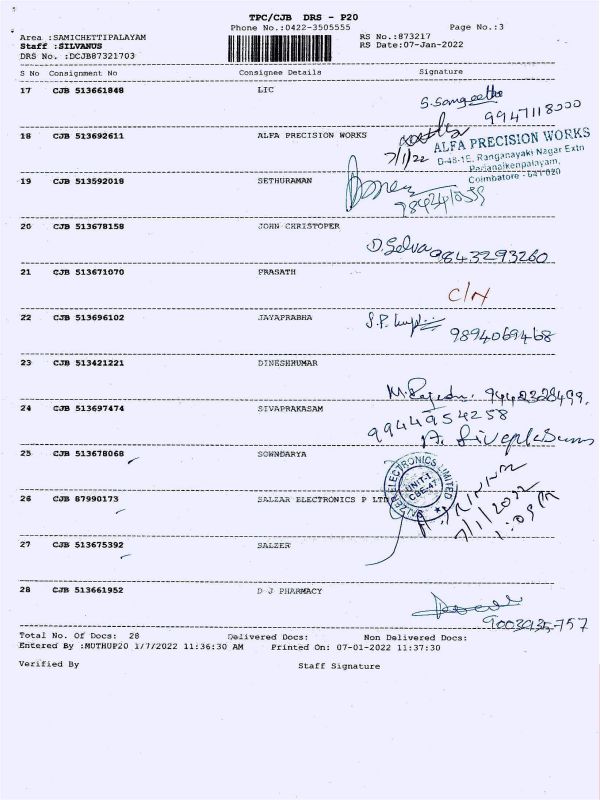 TPC/CJB DRS - P20
Phone No.:0422-3505555 Page No.:3
Area :SAMICHETTIPALAYAM RS No.:873217
Staff :SILVANUS RS Date:07-Jan-2022
DRS No. :DCJB87321703
S No Consignment No Consignee Details Signature
17 CJB 513661848 LIC
S. Sangeetha
9947118000
18 CJB 513692611 ALFA PRECISION WORKS
7/1/22 ALFA PRECISION WORKS
D-48-1E, Ranganayaki Nagar Extn
Coimbatore - 641 020
19 CJB 513592018 SETHURAMAN
20 CJB 513678158 JOHN CHRISTOPER
D. Selva 9843293260
21 CJB 513671070 PRASATH
C/N
22 CJB 513696102 JAYAPRABHA
S.P.
9894069468
23 CJB 513421221 DINESHKUMAR
24 CJB 513697474 SIVAPRAKASAM
9944954258
25 CJB 513678068 SOWNDARYA
ELECTRONICS LIMITED
UNIT-1
CBE-47
26 CJB 87990173 SALZAR ELECTRONICS P LTD
7/1/2022
27 CJB 513675392 SALZER
28 CJB 513661952 D J PHARMACY
9003935757
Total No. Of Docs: 28 Delivered Docs: Non Delivered Docs:
Entered By :MUTHUP20 1/7/2022 11:36:30 AM Printed On: 07-01-2022 11:37:30
Verified By Staff Signature